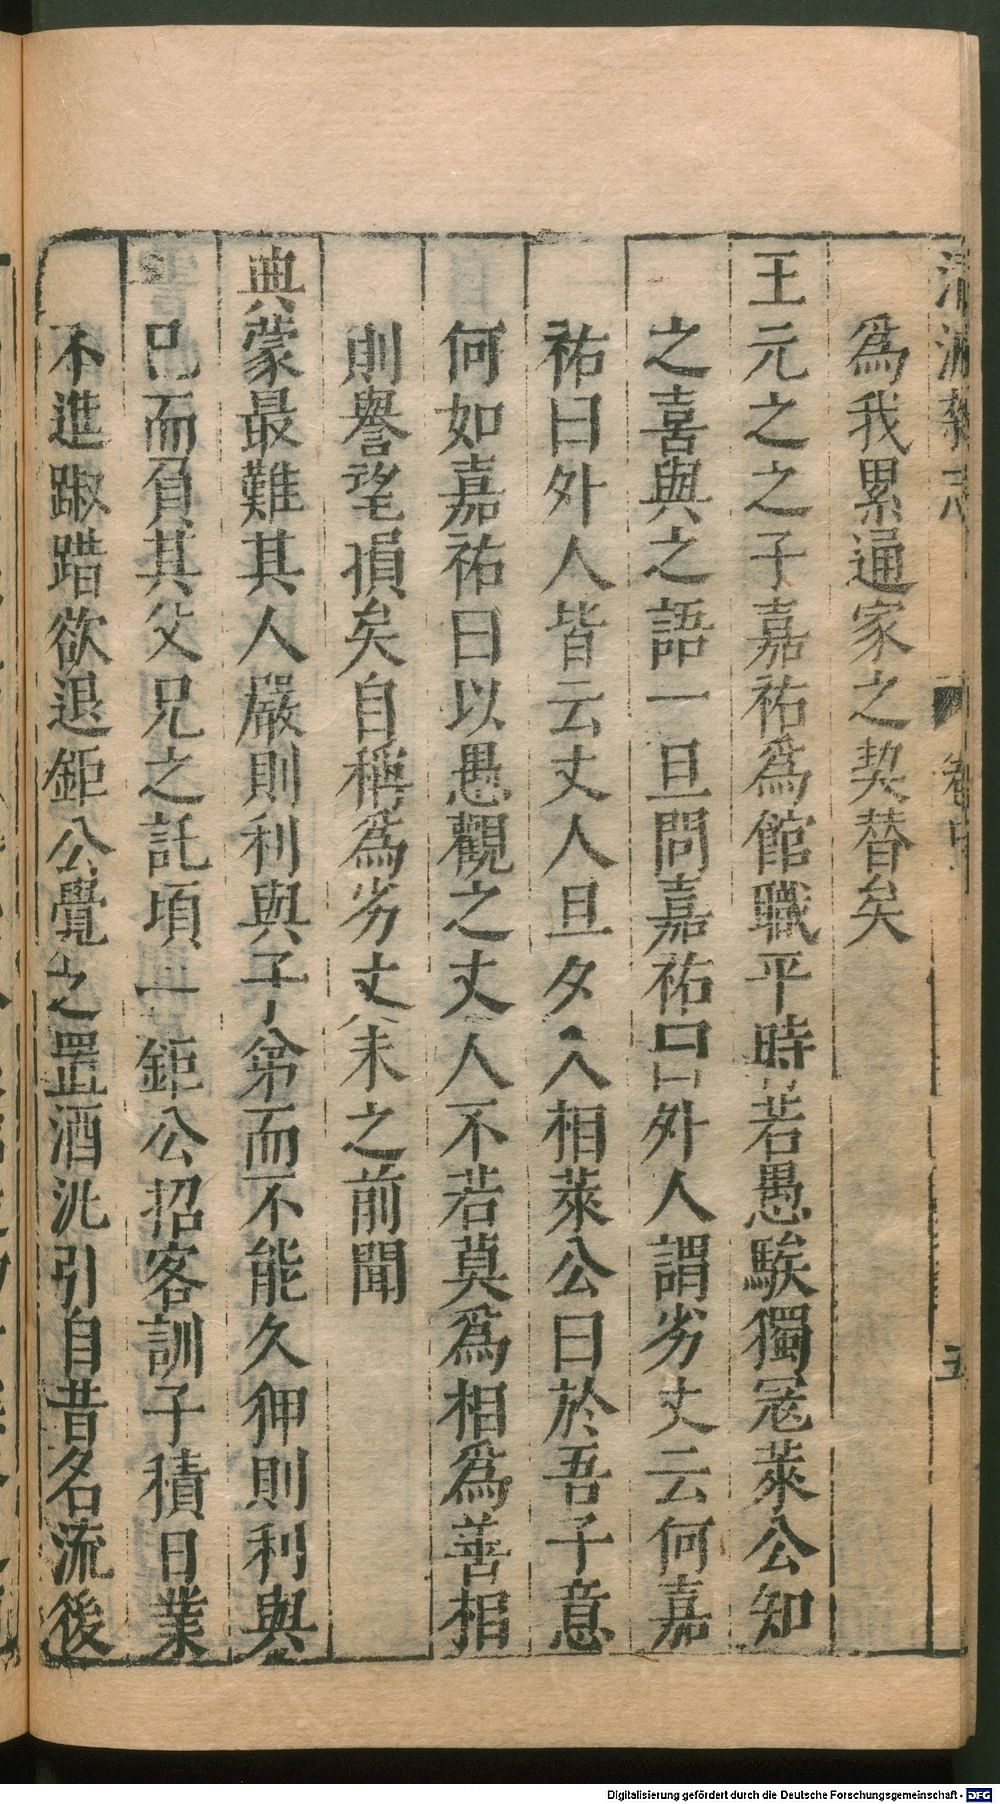 爲我累通家之契替矣
王元之之子嘉祐爲館職平時若愚騃獨寇萊公知
之喜與之語一旦問嘉祐曰外人謂劣丈云何嘉
祐曰外人皆云丈人旦夕入相萊公曰於吾子意
何如嘉祐曰以愚觀之丈人不若莫爲相爲善相
則譽望損矣自稱爲劣丈未之前聞
典蒙最難其人嚴則利與子弟而不能久狎則利與
己而負其父兄之託頃一鉅公招客訓子積日業
不進踧踖欲退鉅公覺之置酒泚引自昔名流後
Digitalisierung gefördert durch die Deutsche Forschungsgemeinschaft - DFG